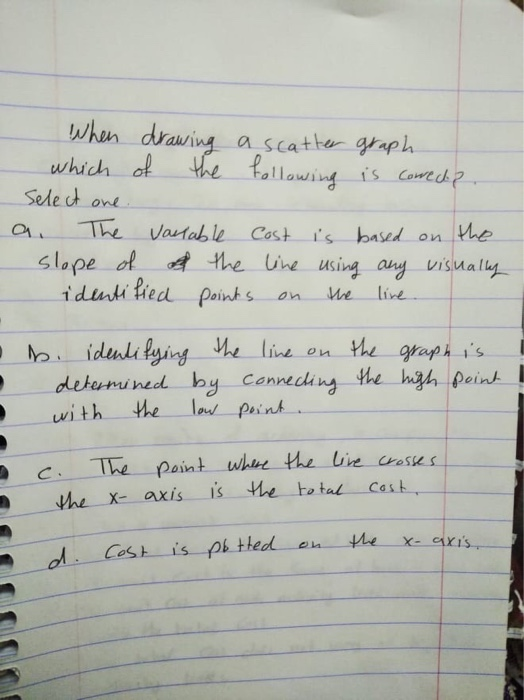 When drawing a scatter graph
which of the following is correct?
Select one.
a. The variable cost is based on the
slope of the line using any visually
identified points on the line.
b. identifying the line on the graph is
determined by connecting the high point
with the low point.
c. The point where the live crosses
the x-axis is the total cost.
d. Cost is plotted on the x-axis.